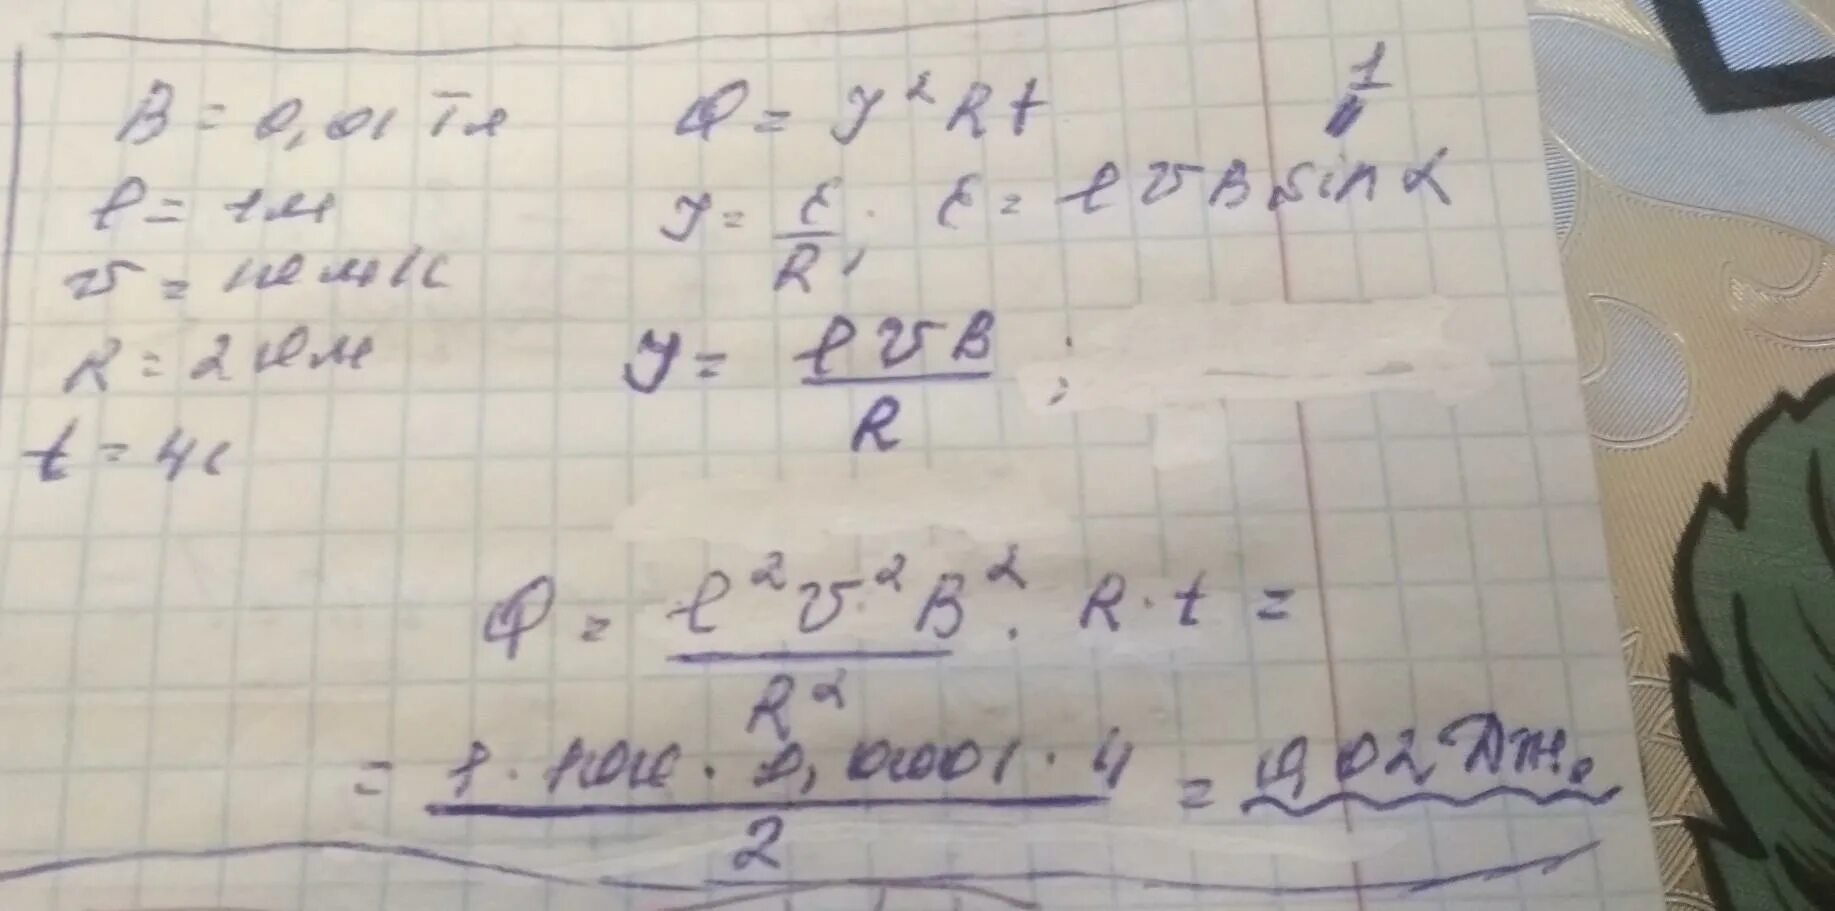 B = 0,01 Тл
l = 1м
v = 10 м/с
R = 2 Ом
t = 4с
Q = I² R t
1
I = ε/R, ε = l v B sin α
I = l v B / R ;
Q = l² v² B² / R² · R · t =
= 1 · 100 · 0,0001 · 4 / 2 = 0,02 Дж.